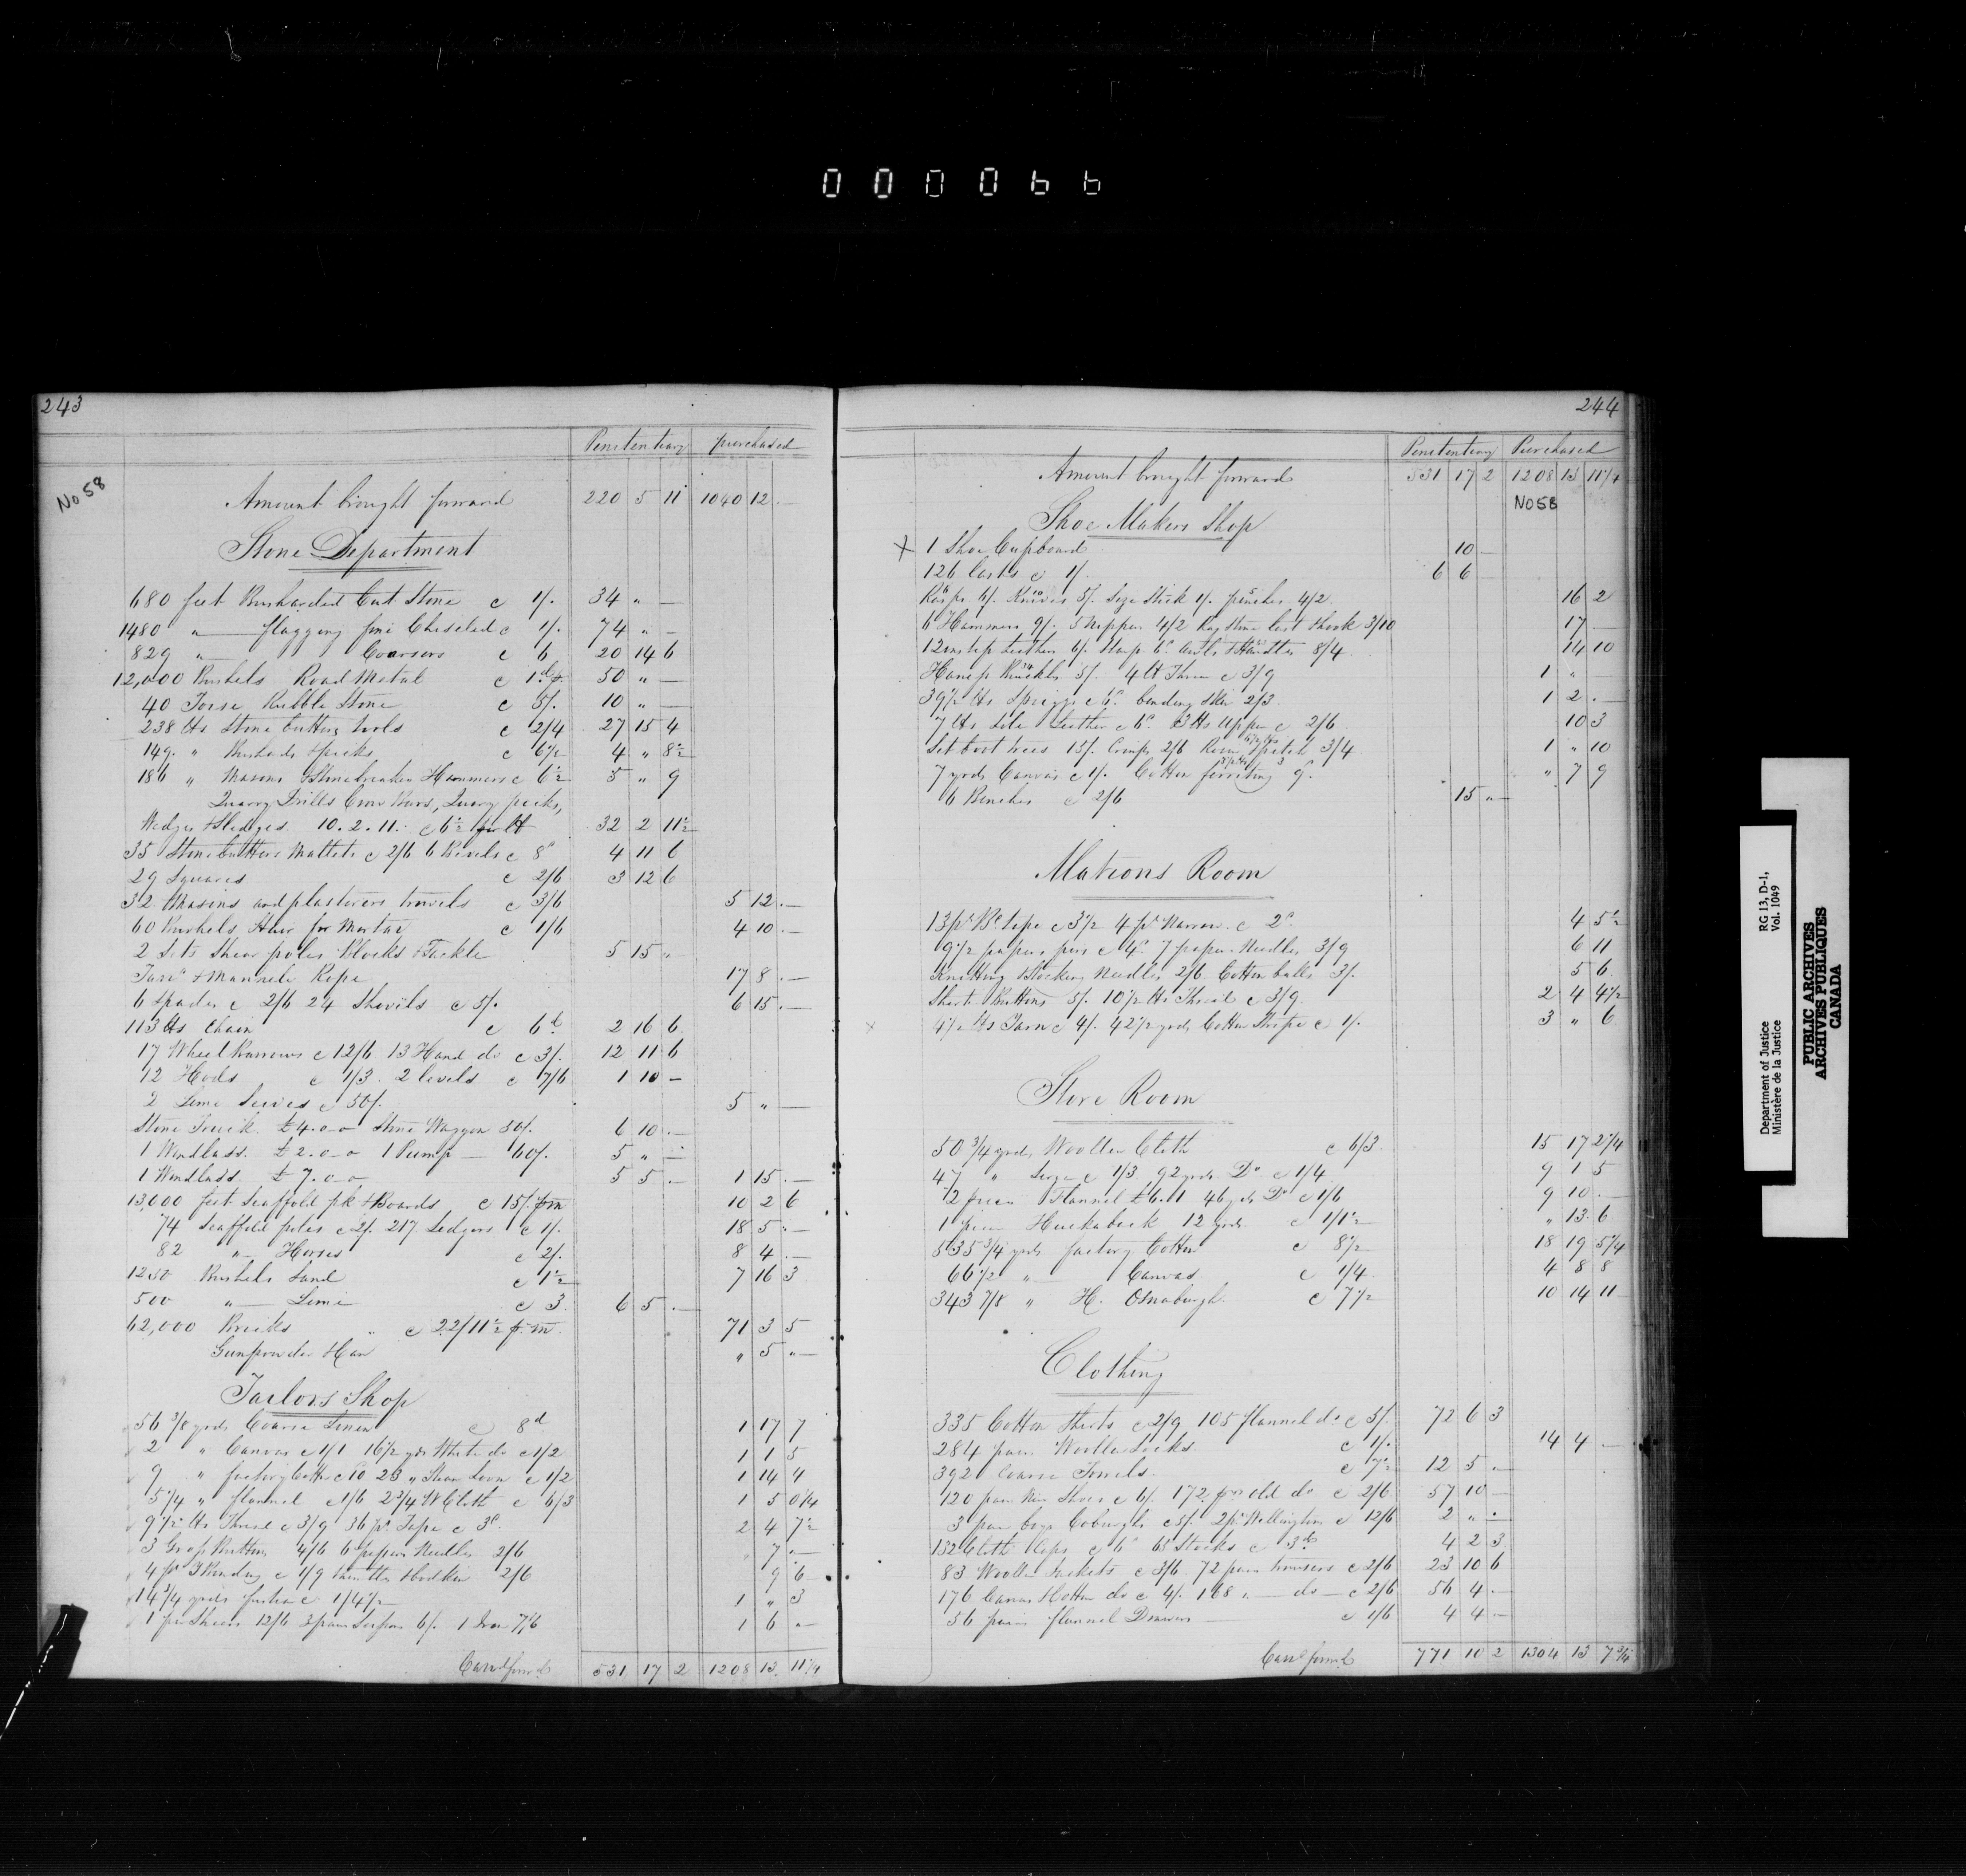 000066
243
Penetentiary purchased
No 58
Amount brought forward 220 5 11 1040 12 . —
Stone Department
680 feet Busharded Cut Stone c 1/. 34 " —
1480 " — flagging fine Chiseled c 1/. 74 " —
829 " — Coarsers c 6 20 14 6
12,000 Bushels Road Metal c 1 d 50 " —
40 Toise Rubble Stone c 5/. 10 " —
238 lts Stone Cutting tools c 2/4 27 15 4
149. " Bushards & picks c 6½ 4 " 8½
186 " Masons & Stonebreaker Hammers c 6½ 5 " 9
Quarry Drills Crow Bars, Quarry picks,
Wedges & Sledges 10.2.11. c 6½ per lt 32 2 11½
35 Stone Cutters Mallets c 2/6 6 Bevels c 8d 4 11 6
29 Squares c 2/6 3 12 6
32 Masons and plasterers trowels c 3/6 5 12 . —
60 Bushels Hair for Mortar c 1/6 4 10 . —
2 Sets Shear poles Blocks & Tackle 5 15 "
Tarrd & Mannela Rope 17 8 . —
6 Spades c 2/6 24 Shovels c 5/. 6 15 . —
113 lts Chain c 6d 2 16 6
17 Wheel Barrows c 12/6 13 Hand do c 3/. 12 11 6
12 Hods c 1/3. 2 levels c 7/6 1 10 —
2 Lime Seives c 50/. 5 " —
Stone Truck £4.0-0 Stone Waggon 50/. 6 10 . —
1 Windlass. £2.0-0 1 Pump — 60/. 5 " —
1 Windlass £7.0-0 5 5 . — 1 15 . —
13,000 feet Scaffold pk & Boards c 15/. pr m 10 2 6
74 Scaffold poles c 2/. 217 Ledgers c 1/. 18 5 " —
82 " — Horses c 2/. 8 4 . —
1250 Bushels Sand c 1½ 7 16 3
500 " — Lime c 3. 6 5 . —
62,000 Bricks c 22/11½ pr m. 71 3 5
Gunpowder Can " 5 " —
Tailors Shop
56 3/8 yrds Coarse Linen c 8d 1 17 7
2 " Canvas c 1/1 16½ yds White do c 1/2 1 1 5
9 " factory Cotton c 10 23 " c 1/2 1 14 4
5 1/4 " flannel c 1/6 2 3/4 W Cloth c 6/3 1 5 0 1/4
9½ lts Thread c 3/9 36 ps Tape c 3d. 2 4 7½
3 Gro Buttons 4/6 6 papers Needles 2/6 " 7 . —
4 ps Binding c 1/9 thimbles & bodken 2/6 9 6 —
14 3/4 yrds c 1/4½ 1 " 3
1 pr Shears 12/6 3 pair Scissors 6/. 1 Iron 7/6 1 6 " —
Card forwd 531 17 2 1208 13 11 1/4
244
Penetentiary Purchased
Amount brought forward 531 17 2 1208 13 11 1/4
No 58
Shoe Makers Shop
X 1 Shoe Cupboard 10 —
126 Lasts c 1/. 6 6 —
Rasps 6/. Knives 5/. Size Stick 1/. pinchers 4/2 16 2
6 Hammers 9/. 3 Nippers 4/2 Rag Stone last Hook 3/10 17 . —
12 Leathers 6/. 6d. awls & Handles 8/4 14 10
5/. 4 lt Thread c 3/9 1 " —
39½ lts Spriggs c 6d. binding Skin 2/3 1 2 . —
7 lts Sole Leather c 3 lts Upper c 2/6 10 3
Set boot trees 15/. Cramps 2/6 Rosin & pitch 3/4 1 " 10
7 yrds Canvas c 1/. Cotton ferriting 9d. " 7 9
6 Benches c 2/6 15 " —
Matrons Room
13 ps Bk tape c 3½ 4 ps Narrow c 2d. 4 5½
9½ papers pins c 4d. 7 papers Needles 3/9 6 11
Knitting & Stocking Needles 2/6 Cotton balls 3/. 5 6
Shirt Buttons 5/. 10½ lts Thread c 3/9 2 4 4½
x 4½ lts Yarn c 4/. 42½ yrds Cotton Stripe c 1/. 3 " 6
Store Room
50 3/4 yrds Woollen Cloth c 6/3 15 17 2 1/4
47 " Serge c 1/3. 92 yrds Do c 1/4 9 1 5
2 pieces Flannel £6.1 46 yds Do c 1/6 9 10 . —
1 piece Huckaback 12 yrds c 1/1½ " 13 6
535 3/4 yrds factory Cotton c 8½ 18 19 5 1/4
66½ " — Canvas c 1/4 4 8 8
343 7/8 " H. Osnaburgh. c 7½ 10 14 11
Clothing
335 Cotton Shirts c 2/9 105 flannel do c 5/. 72 6 3
284 pairs Woollen Socks c 1/. 14 4 . —
392 Coarse Towels. c 7½ 12 5 . —
120 pair New Shoes c 6/. 172 prs old do c 2/6 57 10 —
3 pair boys Coburghs c 5/. 2 ps Wellingtons c 12/6 2 " —
132 Cloth Caps c 6d 65 Stocks c 3d 4 2 3
83 Woollen Jackets c 3/6 72 pair trowsers c 2/6 23 10 6
176 Canvas & Cotton do c 4/. 168 " — do — c 2/6 56 4 . —
56 pairs flannel Drawers — c 1/6 4 4 —
Card forwd 771 10 2 1304 13 7 3/4
Department of Justice
Ministère de la Justice
RG 13, D-1,
Vol. 1049
PUBLIC ARCHIVES
ARCHIVES PUBLIQUES
CANADA